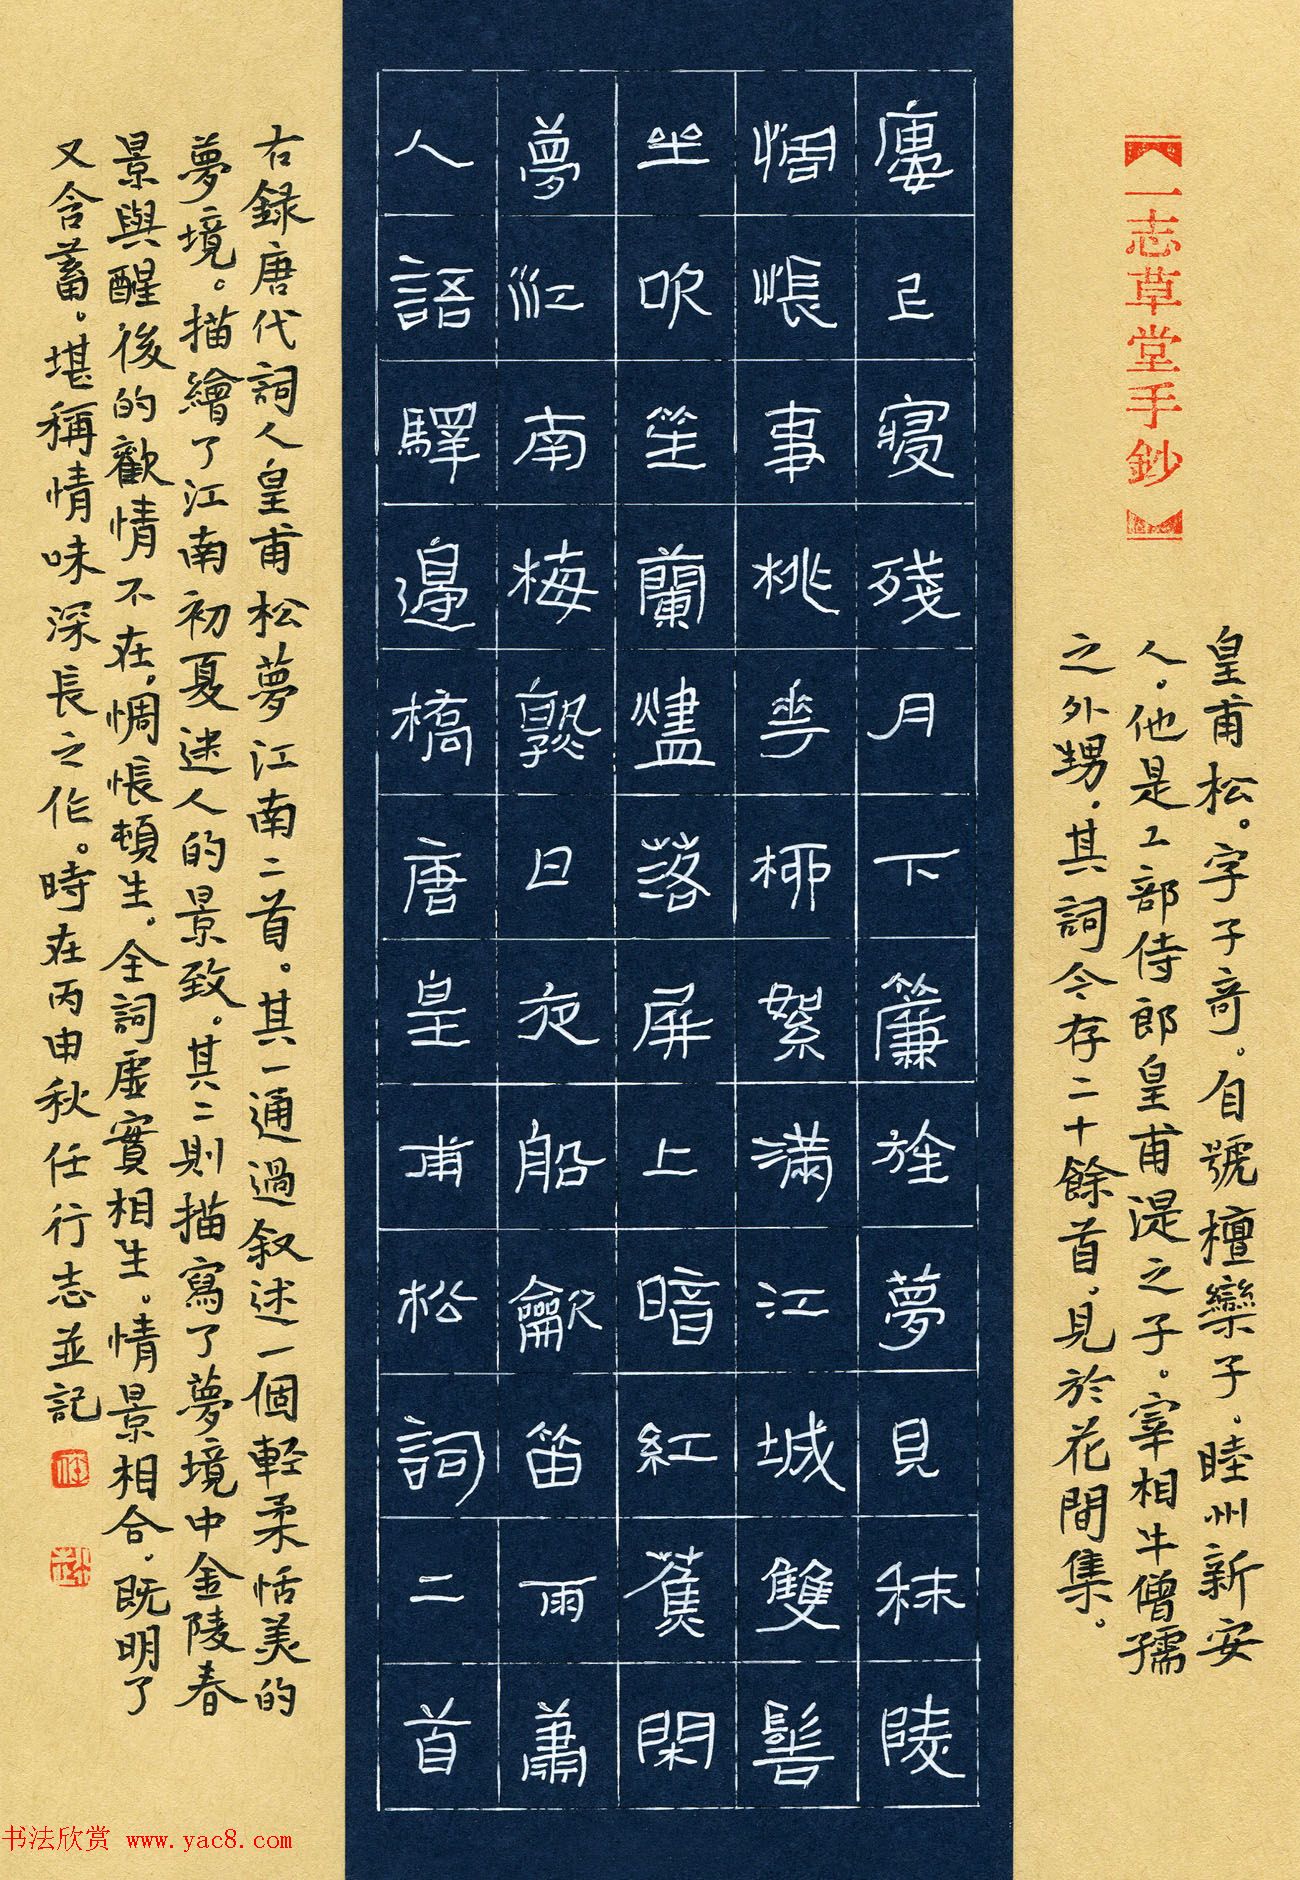 【一志草堂手鈔】
皇甫松。字子奇。自號檀欒子。睦州新安
人。他是工部侍郎皇甫湜之子。宰相牛僧孺
之外甥。其詞今存二十餘首，見於花間集。
廔上寑殘月下簾旌夢見秣陵
惆悵事桃花柳絮滿江城雙髻
坐吹笙蘭燼落屏上暗紅蕉閑
夢江南梅熟日夜船歙笛雨蕭
人語驛邊橋唐皇甫松詞二首
右録唐代詞人皇甫松夢江南二首。其一通過叙述一個輕柔恬美的
夢境。描繪了江南初夏迷人的景致。其二則描寫了夢境中金陵春
景與醒後的歡情不在，惆悵頓生。全詞虛實相生。情景相合。既明了
又含蓄。堪稱情味深長之作。時在丙申秋任行志並記
书法欣赏 www.yac8.com